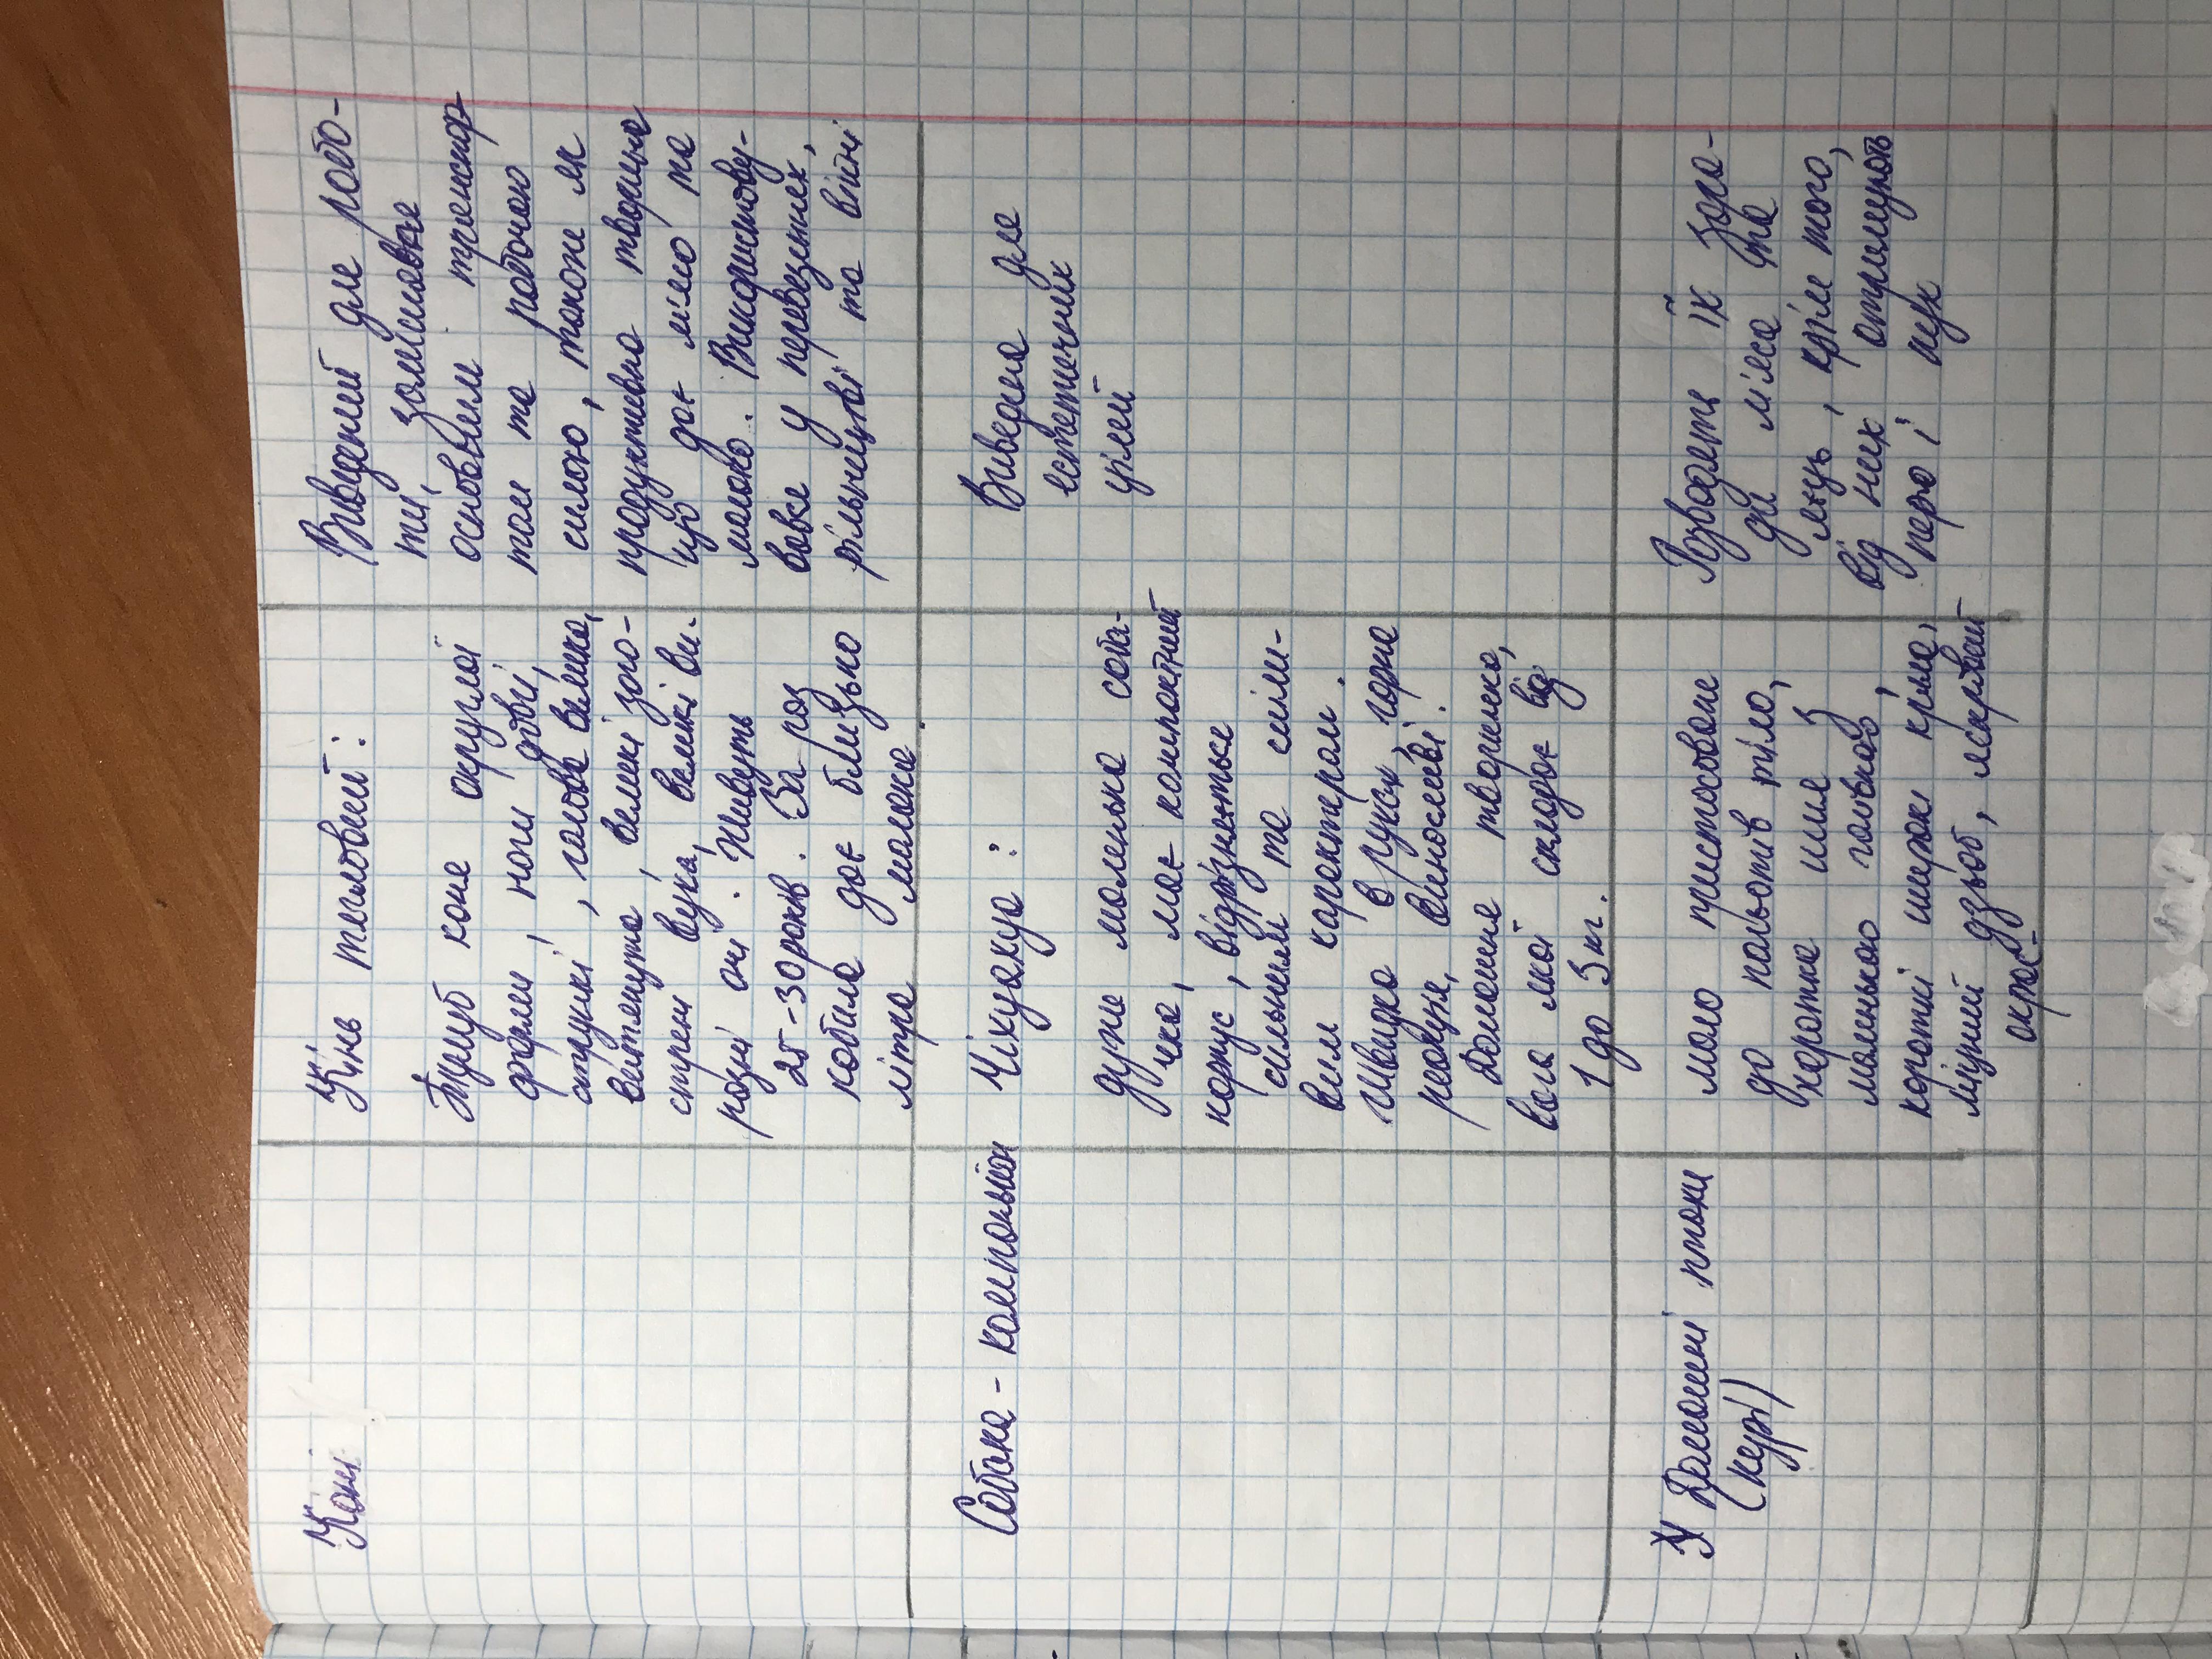 Коні
Кінь тягловий:
Тулуб коня округлої
форми, ноги довгі,
стрункі, голова велика,
витягнута, великі заго-
стрені вуха, великі ви-
разні очі. Живуть
25-30 років. За раз
кобила дає близько
літра молока.
Виведений для робо-
ти, займалався
основним транспор-
том та робочою
силою, також як
продуктивна тварина
що дає м'ясо та
молоко. Використову-
вовся у перевезеннях,
рільництві та війні
Собака - компаньйон
Чіхуахуа:
дуже маленька соба-
чка, має компактний
корпус, відрізняється
сильним та смімі-
вим характером.
Швидка в русі, гарна
реакція, виносливі.
Домашня тваринка,
вага якої складає від
1 до 3 кг.
Виведена для
естетичних
цілей
У Домашні птахи
(кури)
мало пристосоване
до польотів тіло,
коротка шия з
маленькою головою,
короткі широкі крила,
міцний дзьоб, яскравий
окрас
Розводять їх зара-
ди м'яса та
яєць, крім того,
від них отримують
перо і пух